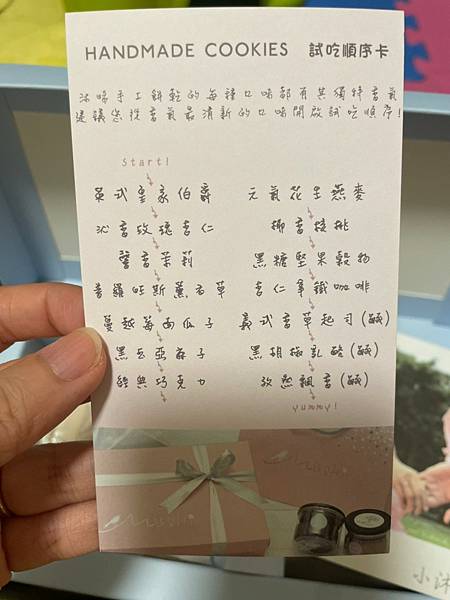 HANDMADE COOKIES 試吃順序卡
沐晞手工餅乾的每種口味都有其獨特香氣
建議您從香氣最清新的口味開啟試吃順序!
Start!
英式皇家伯爵
沁香玫瑰杏仁
馨香茉莉
普羅旺斯薰衣草
蔓越莓南瓜子
黑豆亞麻子
經典巧克力
元氣花生燕麥
椰香核桃
黑糖堅果穀物
杏仁拿鐵咖啡
義式香草起司(鹹)
黑胡椒乳酪(鹹)
孜然飄香(鹹)
yummy!
小沐